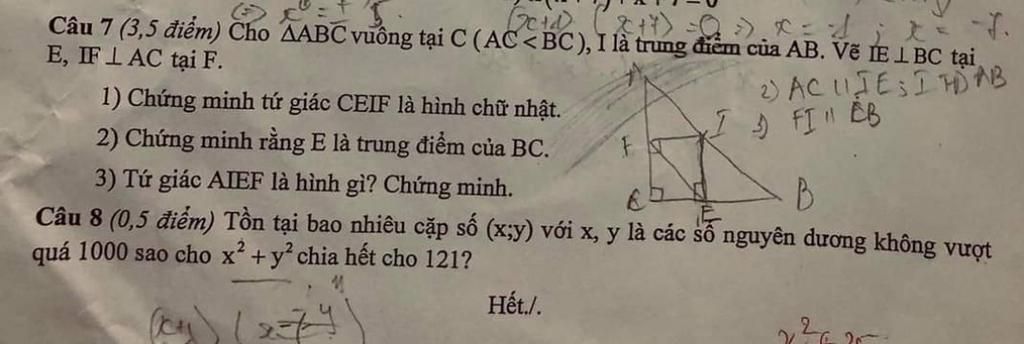 Câu 7 (3,5 điểm) Cho ΔABC vuông tại C (AC < BC), I là trung điểm của AB. Vẽ IE ⊥ BC tại
E, IF ⊥ AC tại F.
2) AC // IE; I TĐ AB
1) Chứng minh tứ giác CEIF là hình chữ nhật.
FI // EB
2) Chứng minh rằng E là trung điểm của BC.
3) Tứ giác AIEF là hình gì? Chứng minh.
A
I
F
C
E
B
Câu 8 (0,5 điểm) Tồn tại bao nhiêu cặp số (x;y) với x, y là các số nguyên dương không vượt
quá 1000 sao cho x² + y² chia hết cho 121?
Hết./.
(x+y)